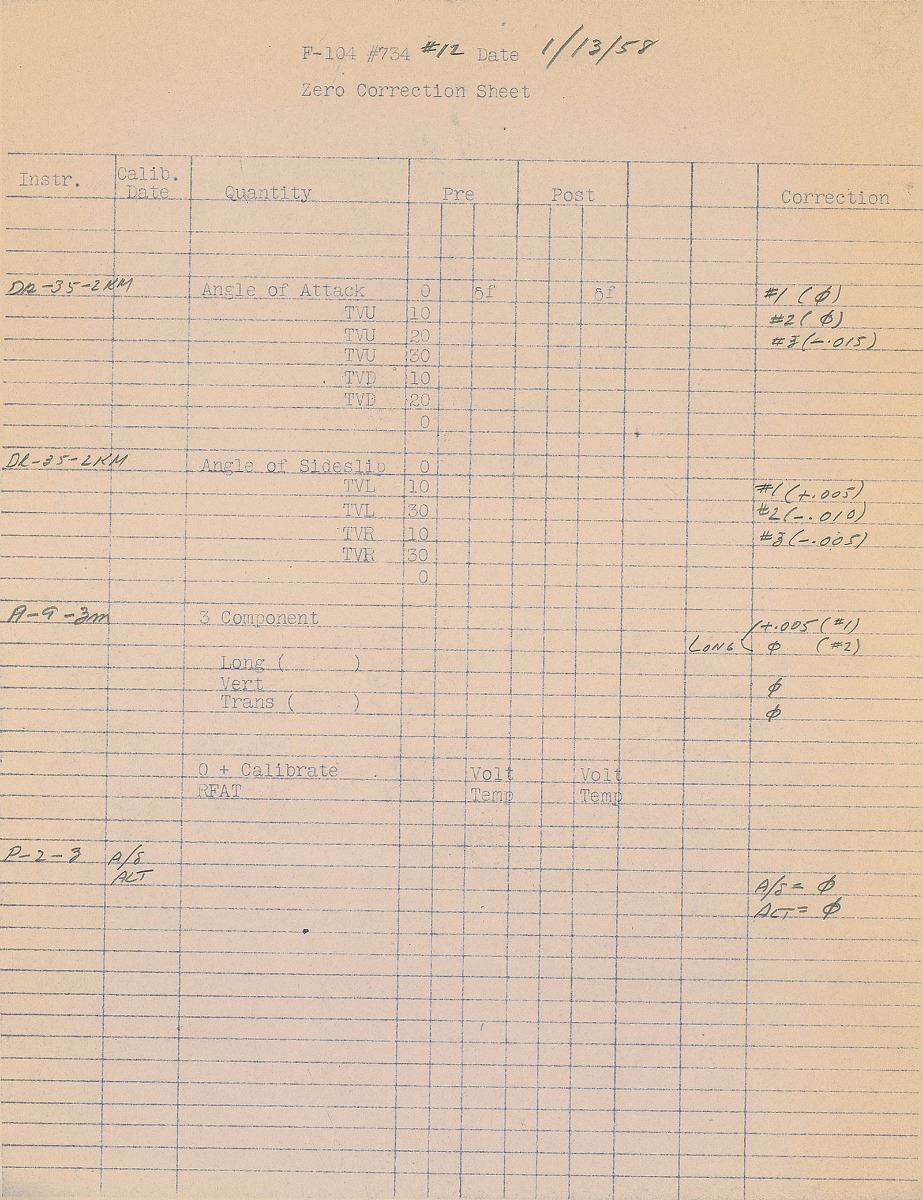 F-104 #734 #12 Date 1/13/58
Zero Correction Sheet
Instr. Calib. Date Quantity Pre Post Correction
DR-35-2KM Angle of Attack 0 δf δf #1 (φ)
TVU 10 #2 (φ)
TVU 20 #3 (-.015)
TVU 30
TVD 10
TVD 20
0
DR-35-2KM Angle of Sideslip 0
TVL 10 #1 (+.005)
TVL 30 #2 (-.010)
TVR 10 #3 (-.005)
TVR 30
0
A-9-3m 3 Component +.005 (#1)
LONG φ (#2)
Long ( )
Vert φ
Trans ( ) φ
0 + Calibrate Volt Volt
RFAT Temp Temp
P-2-3 A/S
ALT
A/S = φ
ALT = φ